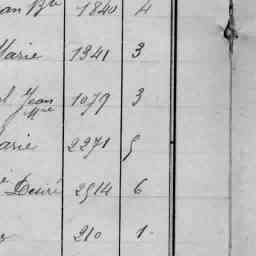 an Bte 1840 4
Marie 1341 3
l Jean Mie 1079 3
arie 2271 5
Désiré 2914 6
210 1